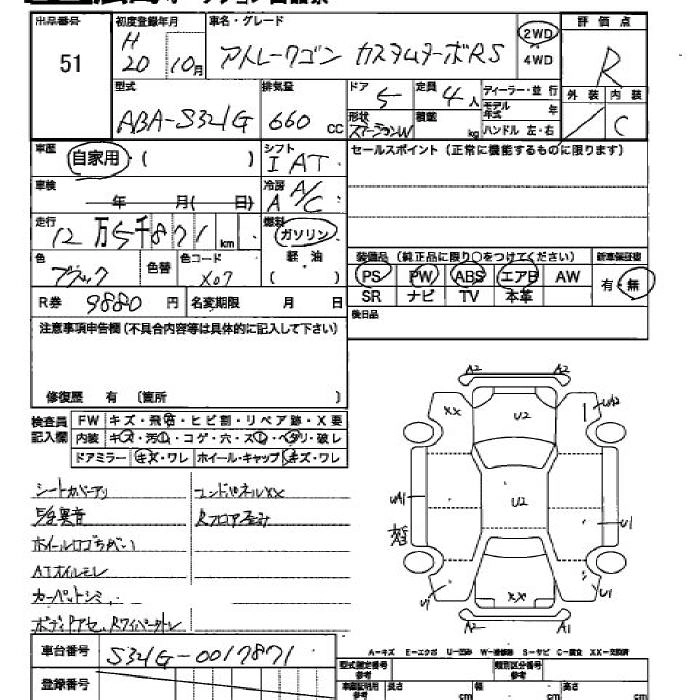 出品番号 初度登録年月 車名・グレード 2WD 評価点
51 H20 10月 アトレーワゴン カスタムターボRS 4WD R
型式 排気量 ドア 定員 ディーラー・並行 外装 内装
ABA-S321G 660 CC 5 4人 モデル年式 年 / C
形状 ステーションW 積載 kg ハンドル 左・右
車歴 自家用 ( ) シフト I AT セールスポイント (正常に機能するものに限ります)
車検 年 月( 日) 冷房 A A/C
走行 12万5千871km 燃料 ガソリン
軽油
( )
色 ブラック 色替 色コード X07
装備品 (純正品に限り○をつけてください) 新車保証書
PS PW ABS エアB AW 有・無
SR ナビ TV 本革
R券 9880円 名変期限 月 日
後日品
注意事項申告欄(不具合内容等は具体的に記入して下さい)
修復歴 有 〔箇所 〕
検査員記入欄 FW キズ・飛石・ヒビ割・リペア跡・X要
内装 キズ・汚れ・コゲ・穴・スレ・ヘタリ・破レ
ドアミラー キズ・ワレ ホイール・キャップ キズ・ワレ
シートカバーアリ コアパネルXX
異音 Rフロア
ホイールロゴちがい
ATオイルモレ
カーペットシミ
ボディアセ、Rワイパー
A2 A2
XX U2
U2
UA1 U1
U1 XX U1
A2 A1
A-キズ E-エクボ U-凹み W-補修跡 S-サビ C-腐食 XX-交換済
車台番号 S321G-0017871
型式指定番号 参考 類別区分番号 参考
登録番号
車庫証明用 参考 長さ cm 幅 cm 高さ cm